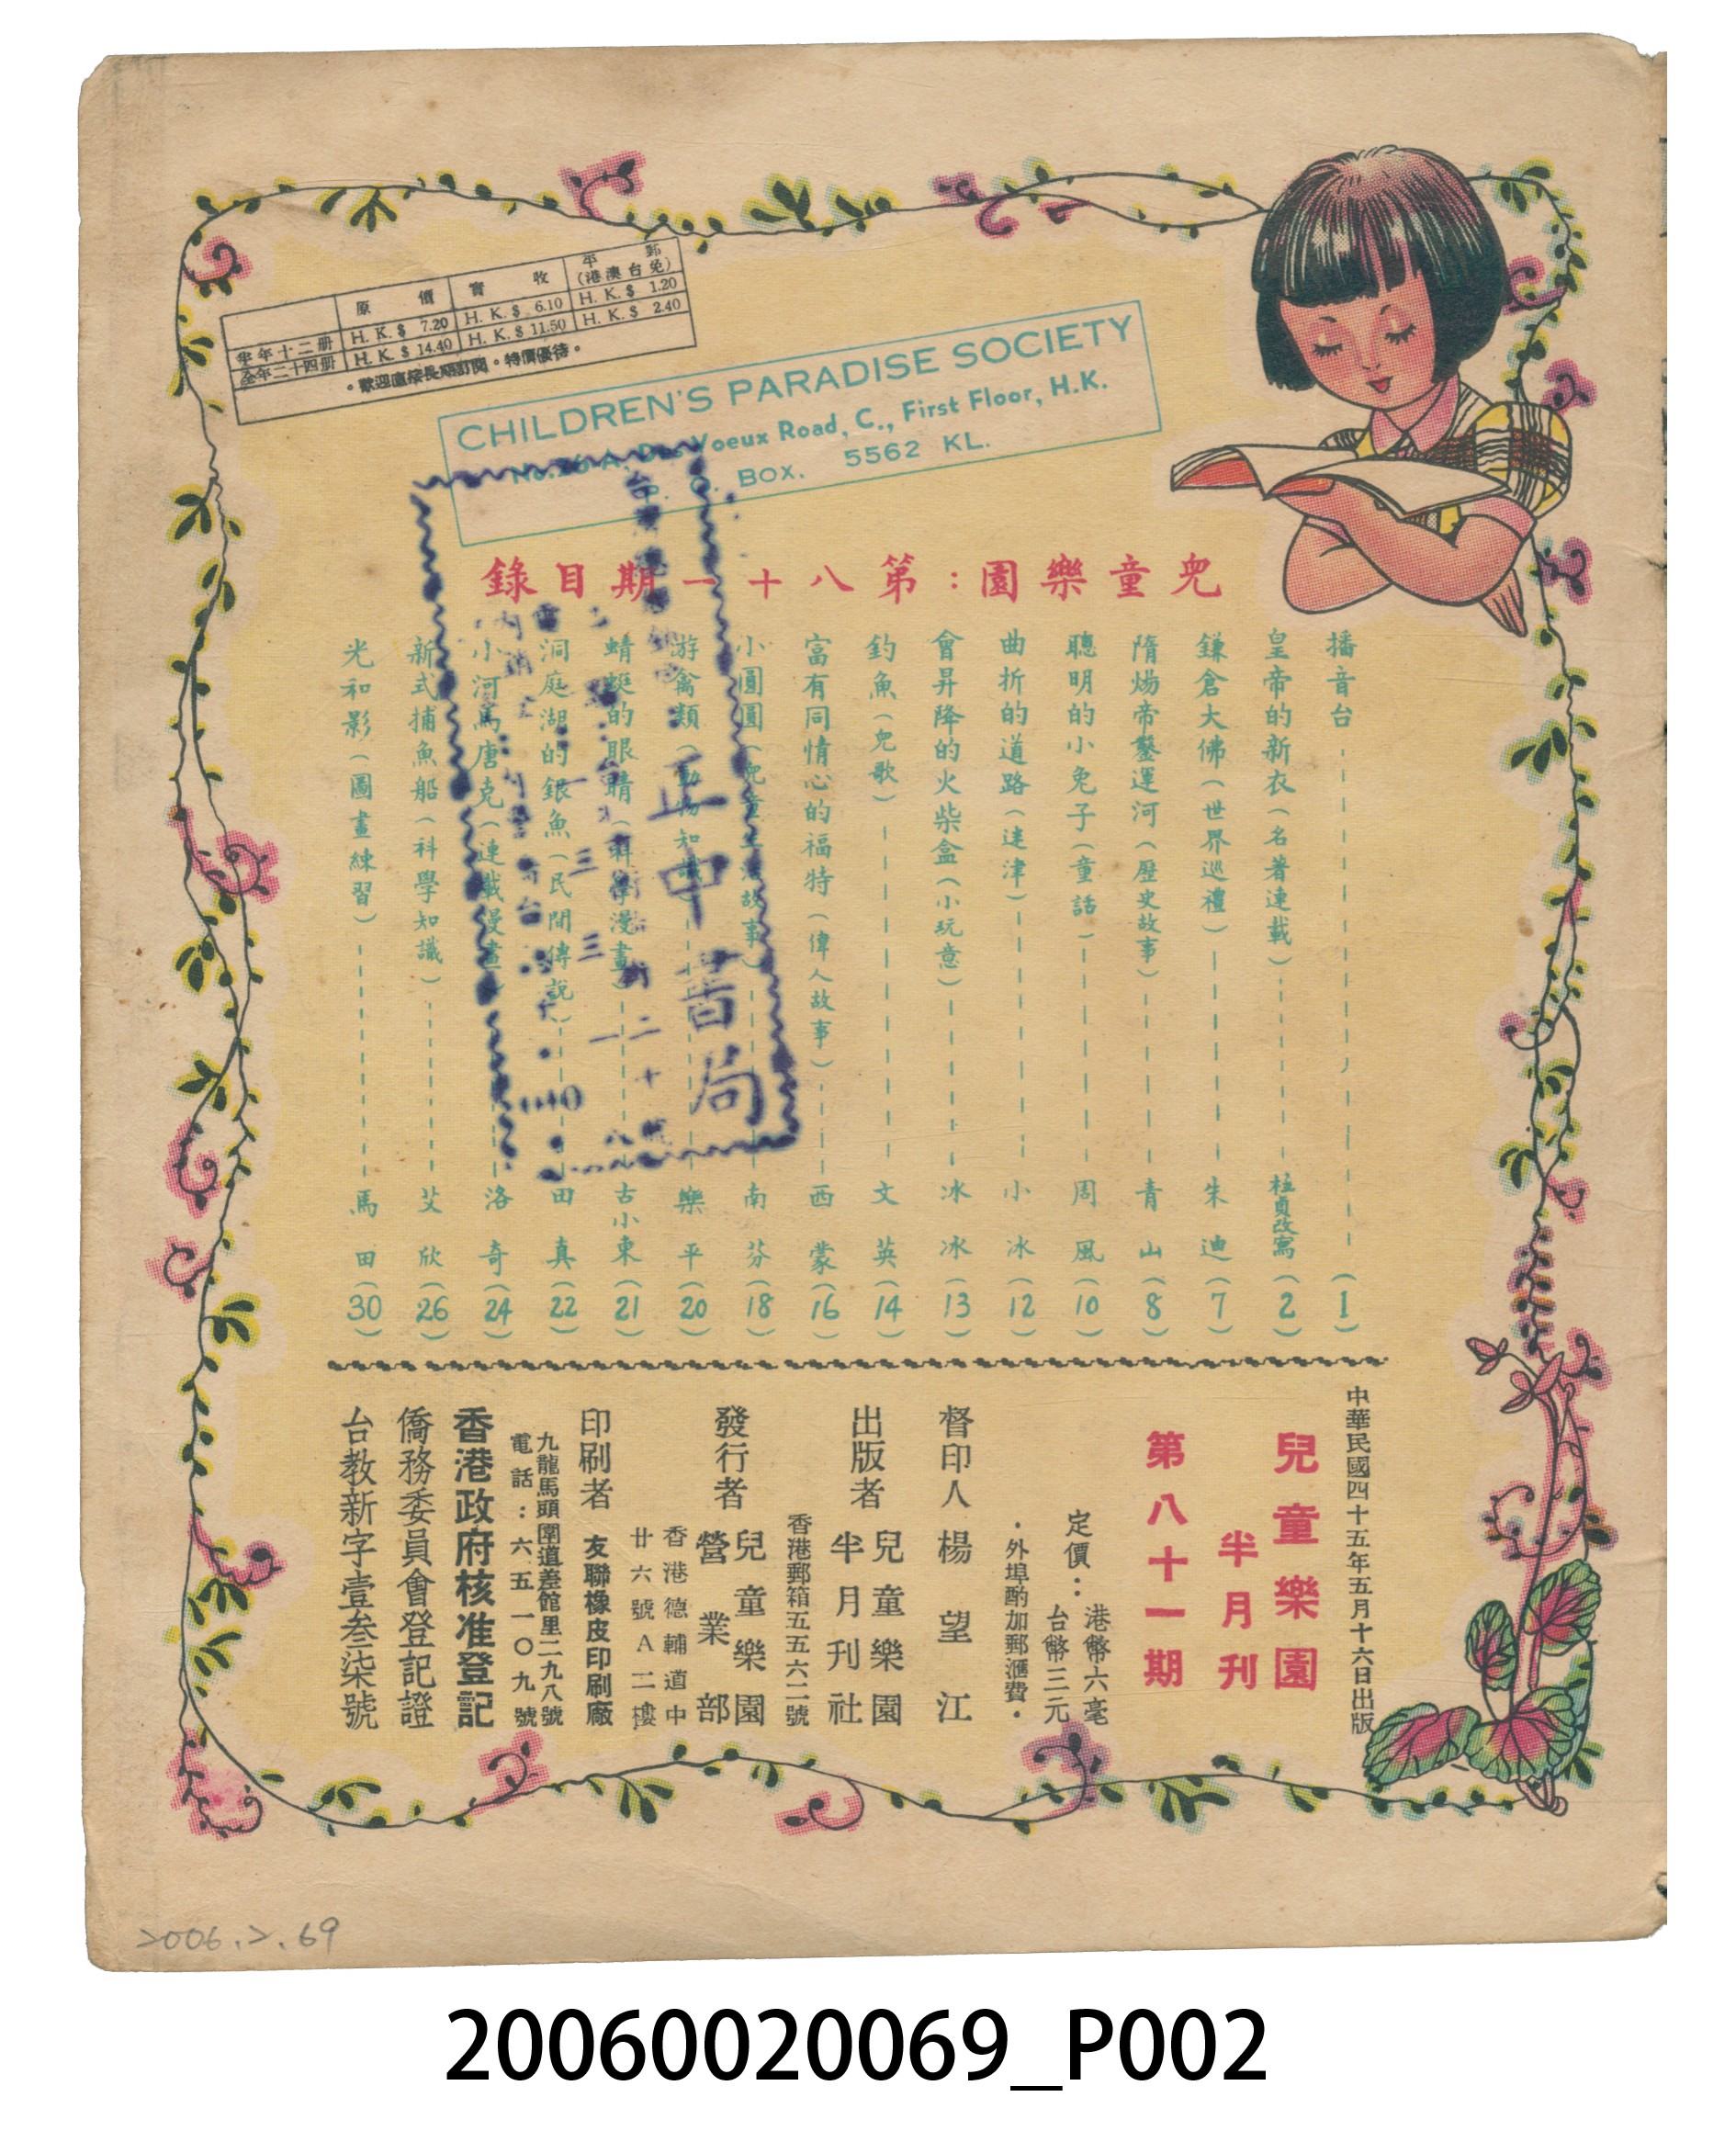 原價
實收
平郵
(港澳台免)
半年十二册 H. K. $ 7.20 H. K. $ 6.10 H. K. $ 1.20
全年二十四册 H. K. $ 14.40 H. K. $ 11.50 H. K. $ 2.40
・歡迎直接長期訂閱・特價優待・
CHILDREN'S PARADISE SOCIETY
Voeux Road, C., First Floor, H.K.
BOX. 5562 KL.
兒童樂園：第八十一期目錄
播音台 (1)
皇帝的新衣(名著連載) 桂貞改寫(2)
鎌倉大佛(世界巡禮) 朱迪(7)
隋煬帝鑿運河(歷史故事) 青山(8)
聰明的小兔子(童話) 周風(10)
曲折的道路(迷津) 小冰(12)
會昇降的火柴盒(小玩意) 冰冰(13)
釣魚(兒歌) 文英(14)
富有同情心的福特(偉人故事) 西蒙(16)
小圓圓(兒童生活故事) 南芬(18)
游禽類(動物知識) 樂平(20)
蜻蜓的眼睛(科學漫畫) 古小東(21)
洞庭湖的銀魚(民間傳說) 田真(22)
小河馬唐克(連載漫畫) 洛奇(24)
新式捕魚船(科學知識) 艾欣(26)
光和影(圖畫練習) 馬田(30)
正中書局
中華民國四十五年五月十六日出版
兒童樂園
半月刊
第八十一期
定價：港幣六毫
台幣三元
・外埠酌加郵滙費・
督印人 楊望江
出版者 兒童樂園
半月刊社
香港郵箱五五六二號
發行者 兒童樂園
營業部
香港德輔道中
廿六號A二樓
印刷者 友聯橡皮印刷廠
九龍馬頭圍道差館里二九八號
電話：六五一〇九號
香港政府核准登記
僑務委員會登記證
台教新字壹叁柒號
2006.2.69
20060020069_P002